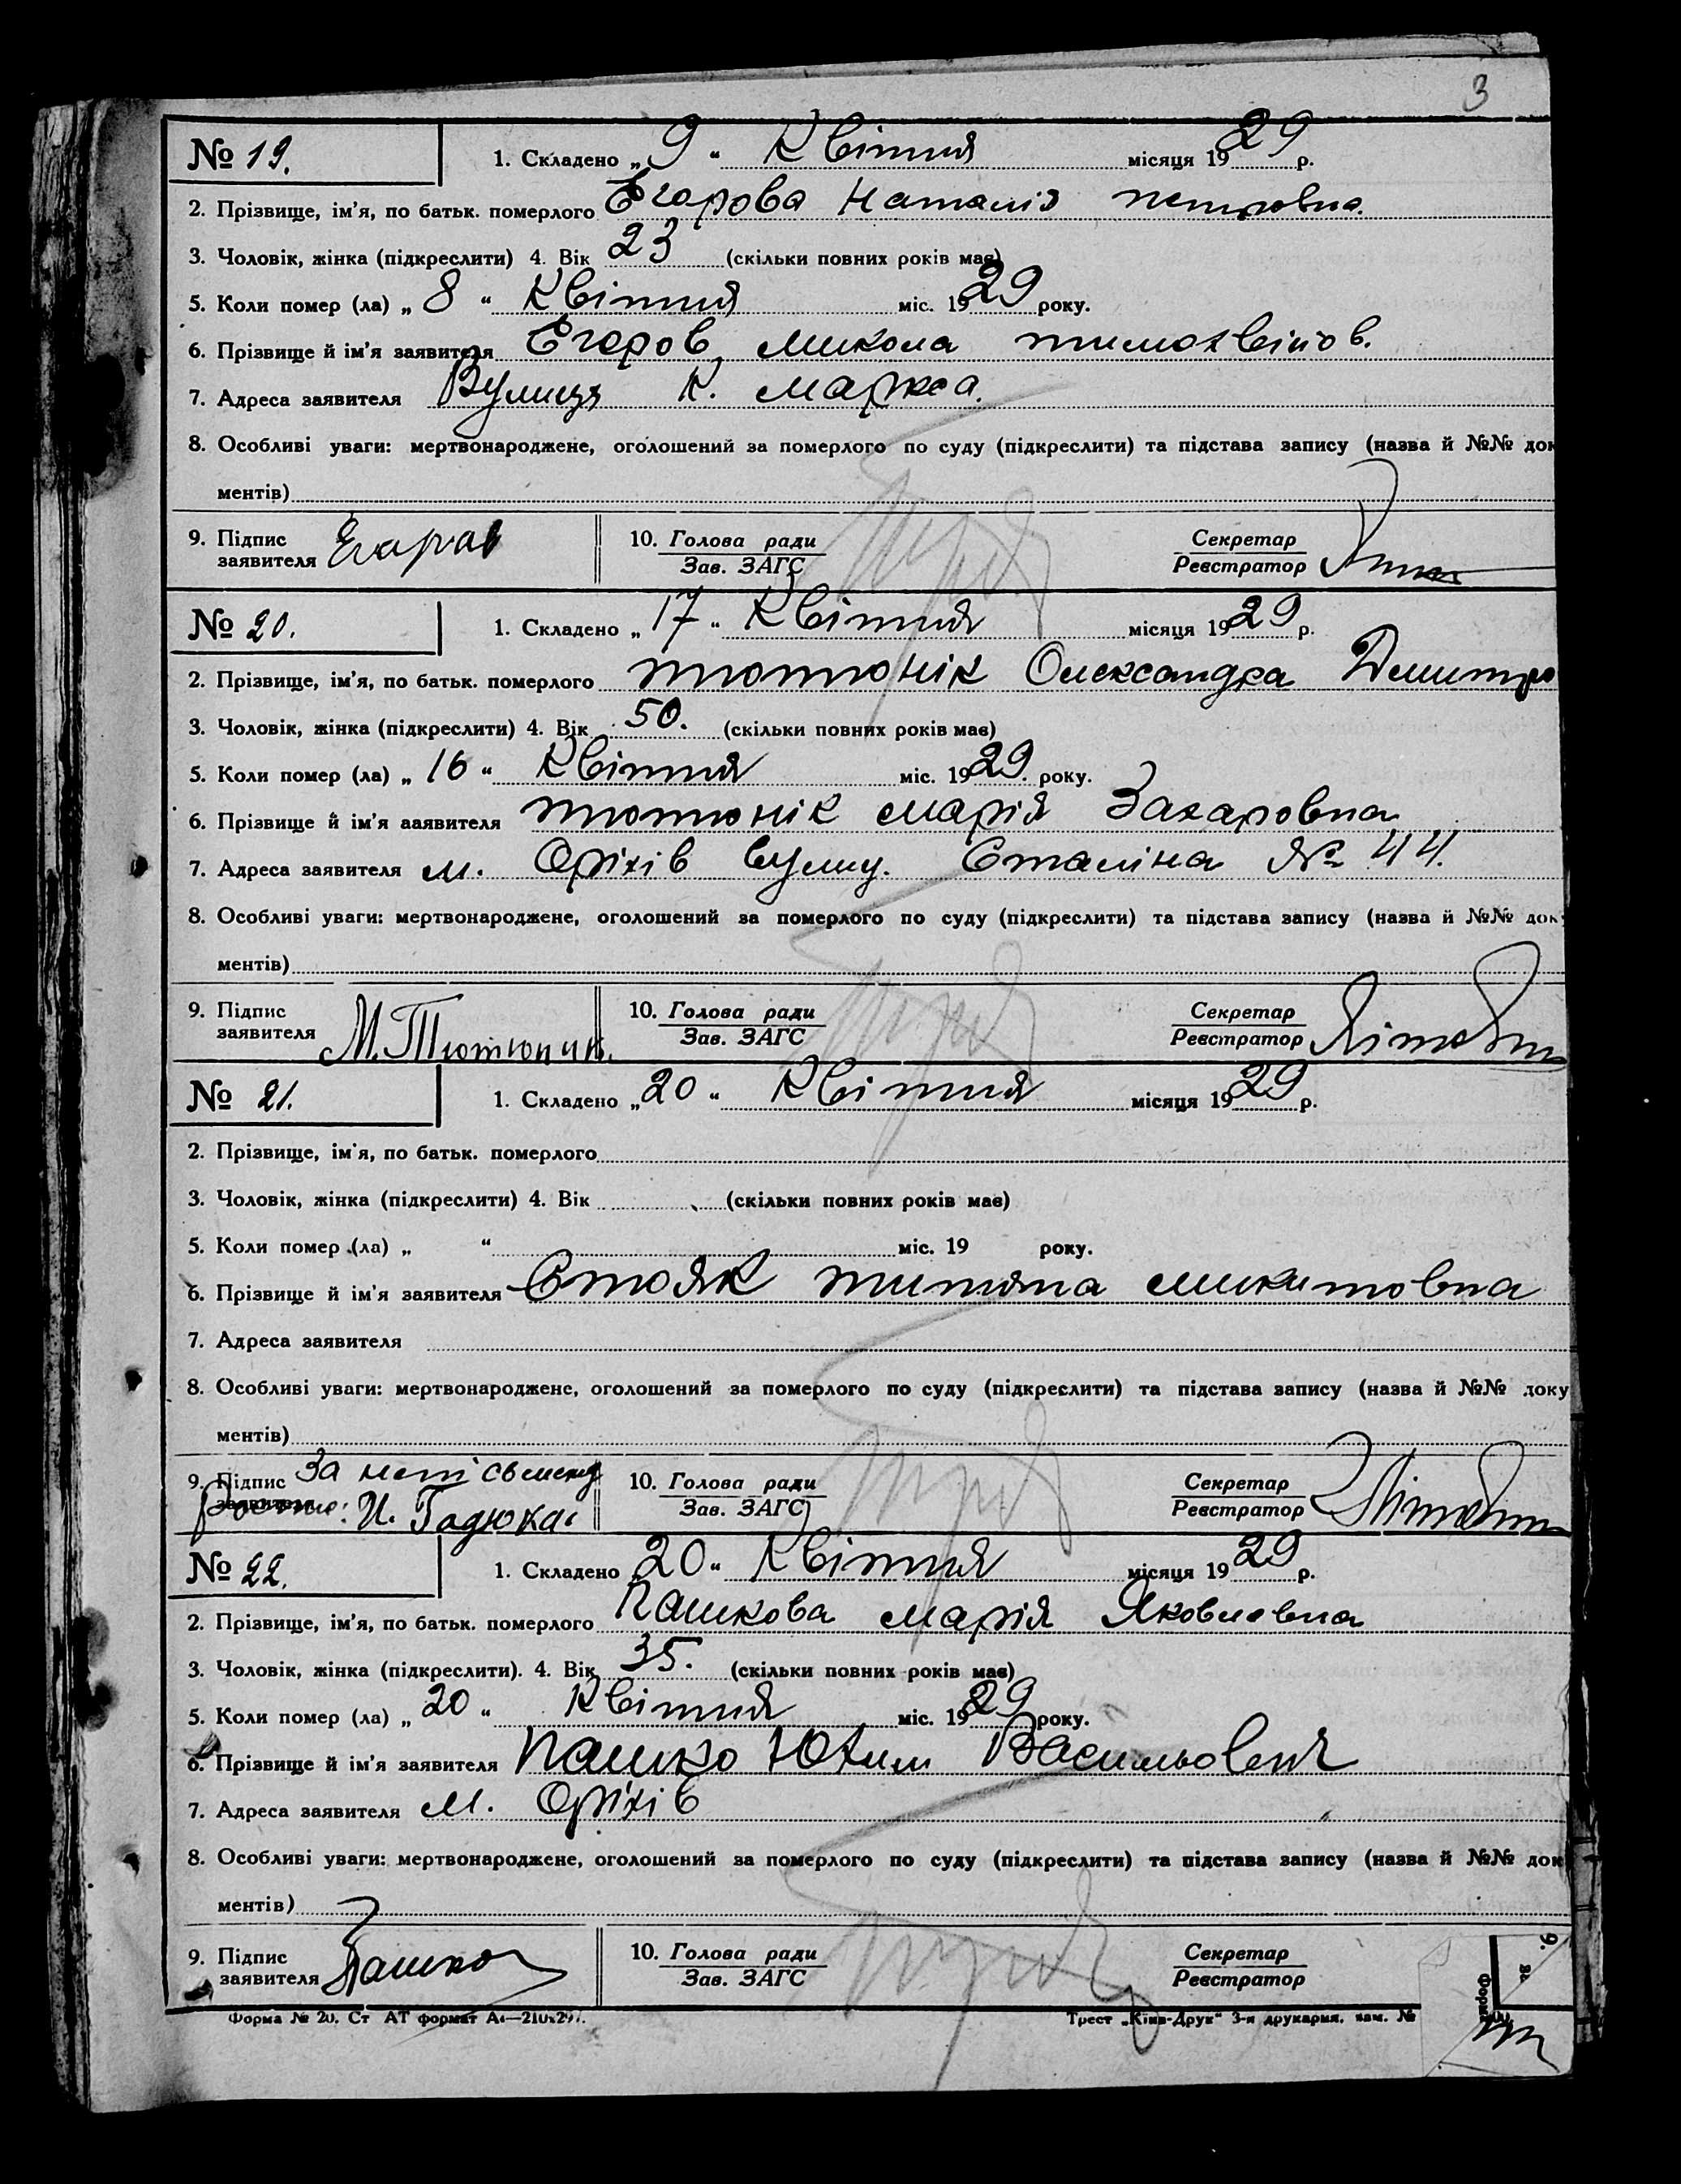 3
№ 19. 1. Складено „ 9 “ Квітня місяця 1929 р.
2. Прізвище, ім'я, по батьк. померлого Єгорова Наталія петровна.
3. Чоловік, жінка (підкреслити) 4. Вік 23 (скільки повних років має)
5. Коли помер (ла) „ 8 “ Квітня міс. 1929 року.
6. Прізвище й ім'я заявителя Єгоров Микола
7. Адреса заявителя Вулиця К. маркса.
8. Особливі уваги: мертвонароджене, оголошений за померлого по суду (підкреслити) та підстава запису (назва й №№ док
ментів)
9. Підпис заявителя Егоров 10. Голова ради Зав. ЗАГС Секретар Реєстратор
№ 20. 1. Складено „ 17 “ Квітня місяця 1929 р.
2. Прізвище, ім'я, по батьк. померлого тютюнік Олександра Дмитро
3. Чоловік, жінка (підкреслити) 4. Вік 50. (скільки повних років має)
5. Коли помер (ла) „ 16 “ Квітня міс. 1929. року.
6. Прізвище й ім'я заявителя тютюнік марія Захаровна
7. Адреса заявителя м. Оріхів вулиц. Сталіна № 44.
8. Особливі уваги: мертвонароджене, оголошений за померлого по суду (підкреслити) та підстава запису (назва й №№ док
ментів)
9. Підпис заявителя М. Тютюник. 10. Голова ради Зав. ЗАГС Секретар Реєстратор
№ 21. 1. Складено „ 20 “ Квітня місяця 1929 р.
2. Прізвище, ім'я, по батьк. померлого
3. Чоловік, жінка (підкреслити) 4. Вік (скільки повних років має)
5. Коли помер (ла) „ “ міс. 19 року.
6. Прізвище й ім'я заявителя Стояк микитовна
7. Адреса заявителя
8. Особливі уваги: мертвонароджене, оголошений за померлого по суду (підкреслити) та підстава запису (назва й №№ доку
ментів)
9. Підпис заявителя За И. Гадюка 10. Голова ради Зав. ЗАГС Секретар Реєстратор
№ 22. 1. Складено 20 “ Квітня місяця 1929 р.
2. Прізвище, ім'я, по батьк. померлого Пашкова марія Яковлевна
3. Чоловік, жінка (підкреслити). 4. Вік 35. (скільки повних років має)
5. Коли помер (ла) „ 20 “ Квітня міс. 1929 року.
6. Прізвище й ім'я заявителя Пашко Юхим Васильович
7. Адреса заявителя м. Оріхів
8. Особливі уваги: мертвонароджене, оголошений за померлого по суду (підкреслити) та підстава запису (назва й №№ док
ментів)
9. Підпис заявителя Пашко 10. Голова ради Зав. ЗАГС Секретар Реєстратор
Форма № 20. Ст АТ формат А4—210х297. Трест „Київ-Друк“ 3-я друкарня. зам. №